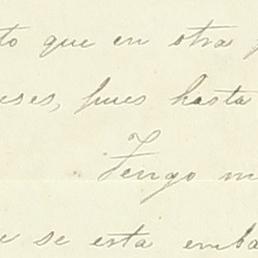 to que en otra
eses, pues hasta
Tengo
se esta